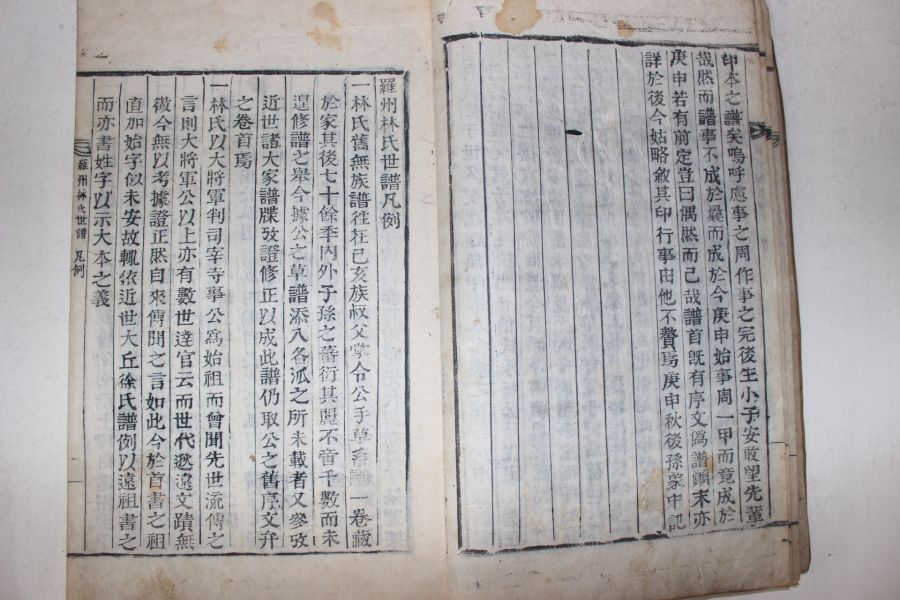 印本之譜矣嗚呼慮事之周作事之完後生小子安敢望先輩
哉然而譜事不成於曩而成於今庚申始事周一甲而竟成於
庚申若有前定豈曰偶然而已哉譜首旣有序文爲譜顚末亦
詳於後今姑略敘其印行事由他不贅焉庚申秋後孫象中記
羅州林氏世譜凡例
一林氏舊無族譜往在己亥族叔父掌令公手草系譜一卷藏
於家其後七十餘年內外子孫之蕃衍其麗不啻千數而未
遑修譜之擧今據公之草譜添入各派之所未載者又參攷
近世諸大家譜牒攷證修正以成此譜仍取公之舊序文弁
之卷首焉
一林氏以大將軍判司宰寺事公爲始祖而曾聞先世流傳之
言則大將軍公以上亦有數世達官云而世代邈遠文蹟無
徵今無以考據證正然自來傳聞之言如此今於首書之祖
直加始字似未安故輒依近世大丘徐氏譜例以遠祖書之
而亦書姓字以示大本之義
羅州林氏世譜 凡例